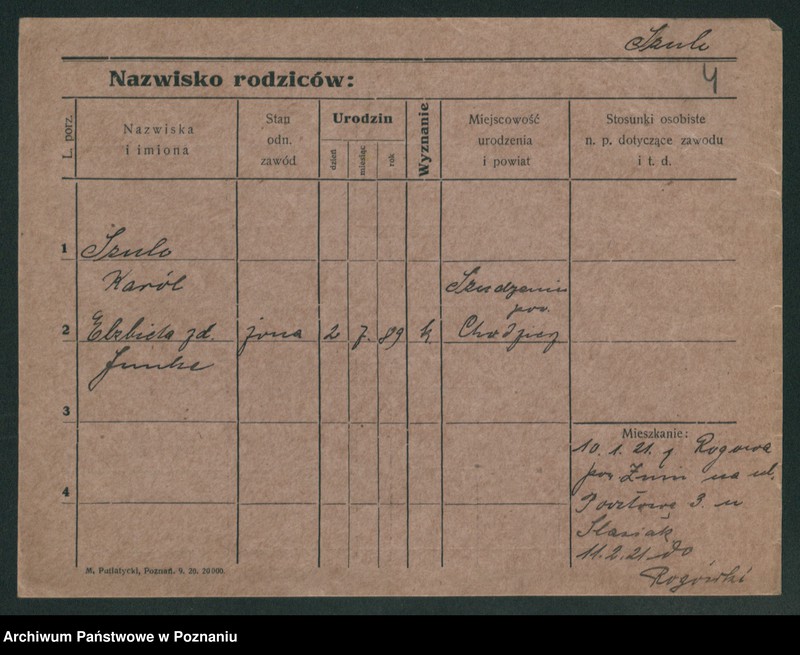 Szulc
4
Nazwisko rodziców:
L. porz.
Nazwiska
i imiona
Stan
odn.
zawód
Urodzin
dzień
miesiąc
rok
Wyznanie
Miejscowość
urodzenia
i powiat
Stosunki osobiste
n. p. dotyczące zawodu
i t. d.
1 Szulc
Karól
2 Elzbieta zd. żona 2 7. 89 k
Funke
pow.
Chodzież
3
4
Mieszkanie:
10. 1. 21. z Rogowa
pow Żnin na ul.
Pocztową 3. u
Stasiak
11.2.21. do
M. Putiatycki, Poznań. 9. 20. 20 000.
Archiwum Państwowe w Poznaniu